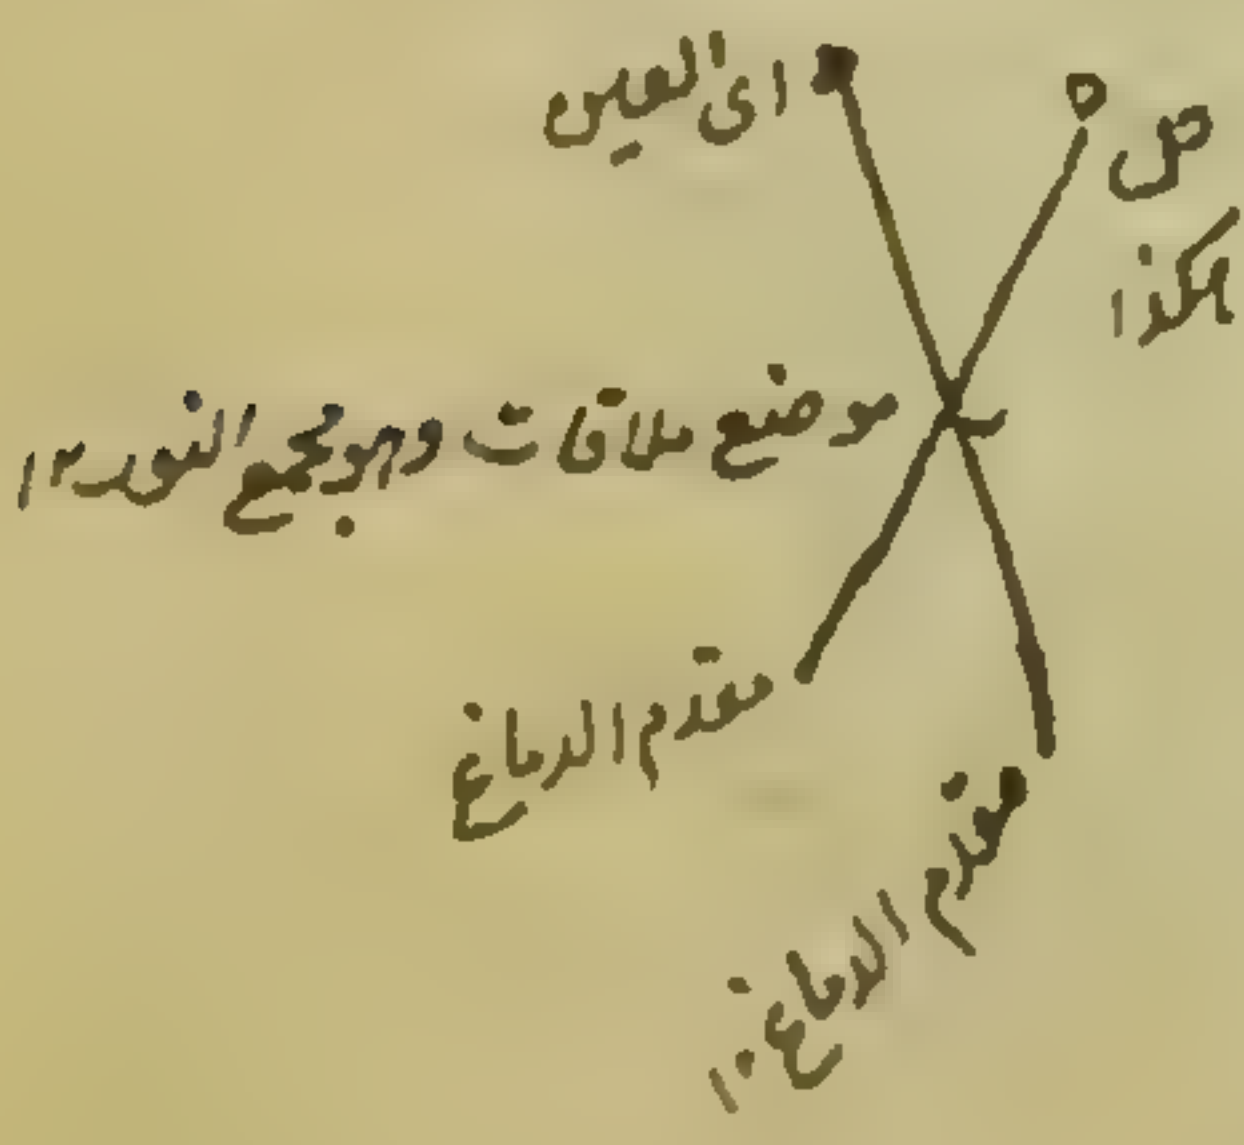 ص
هكذا
ای العین
موضع ملاقات وهو مجمع النور ۱۲
مقدم الدماغ
مقدم الدماغ